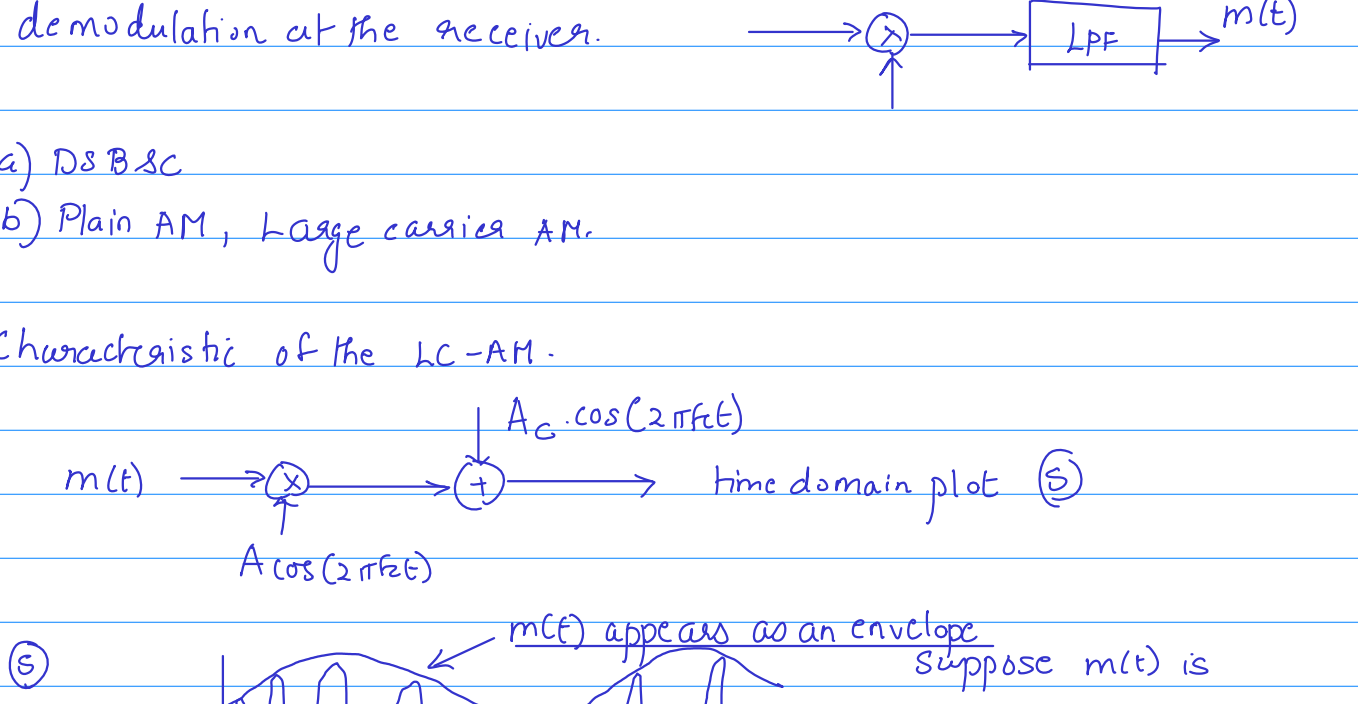 demodulation at the receiver.
LPF
m(t)
a) DSBSC
b) Plain AM, Large carrier AM.
Characteristic of the LC-AM.
Ac.cos(2πfct)
m(t) X + time domain plot (S)
A cos(2πfct)
m(t) appears as an envelope
(S) Suppose m(t) is